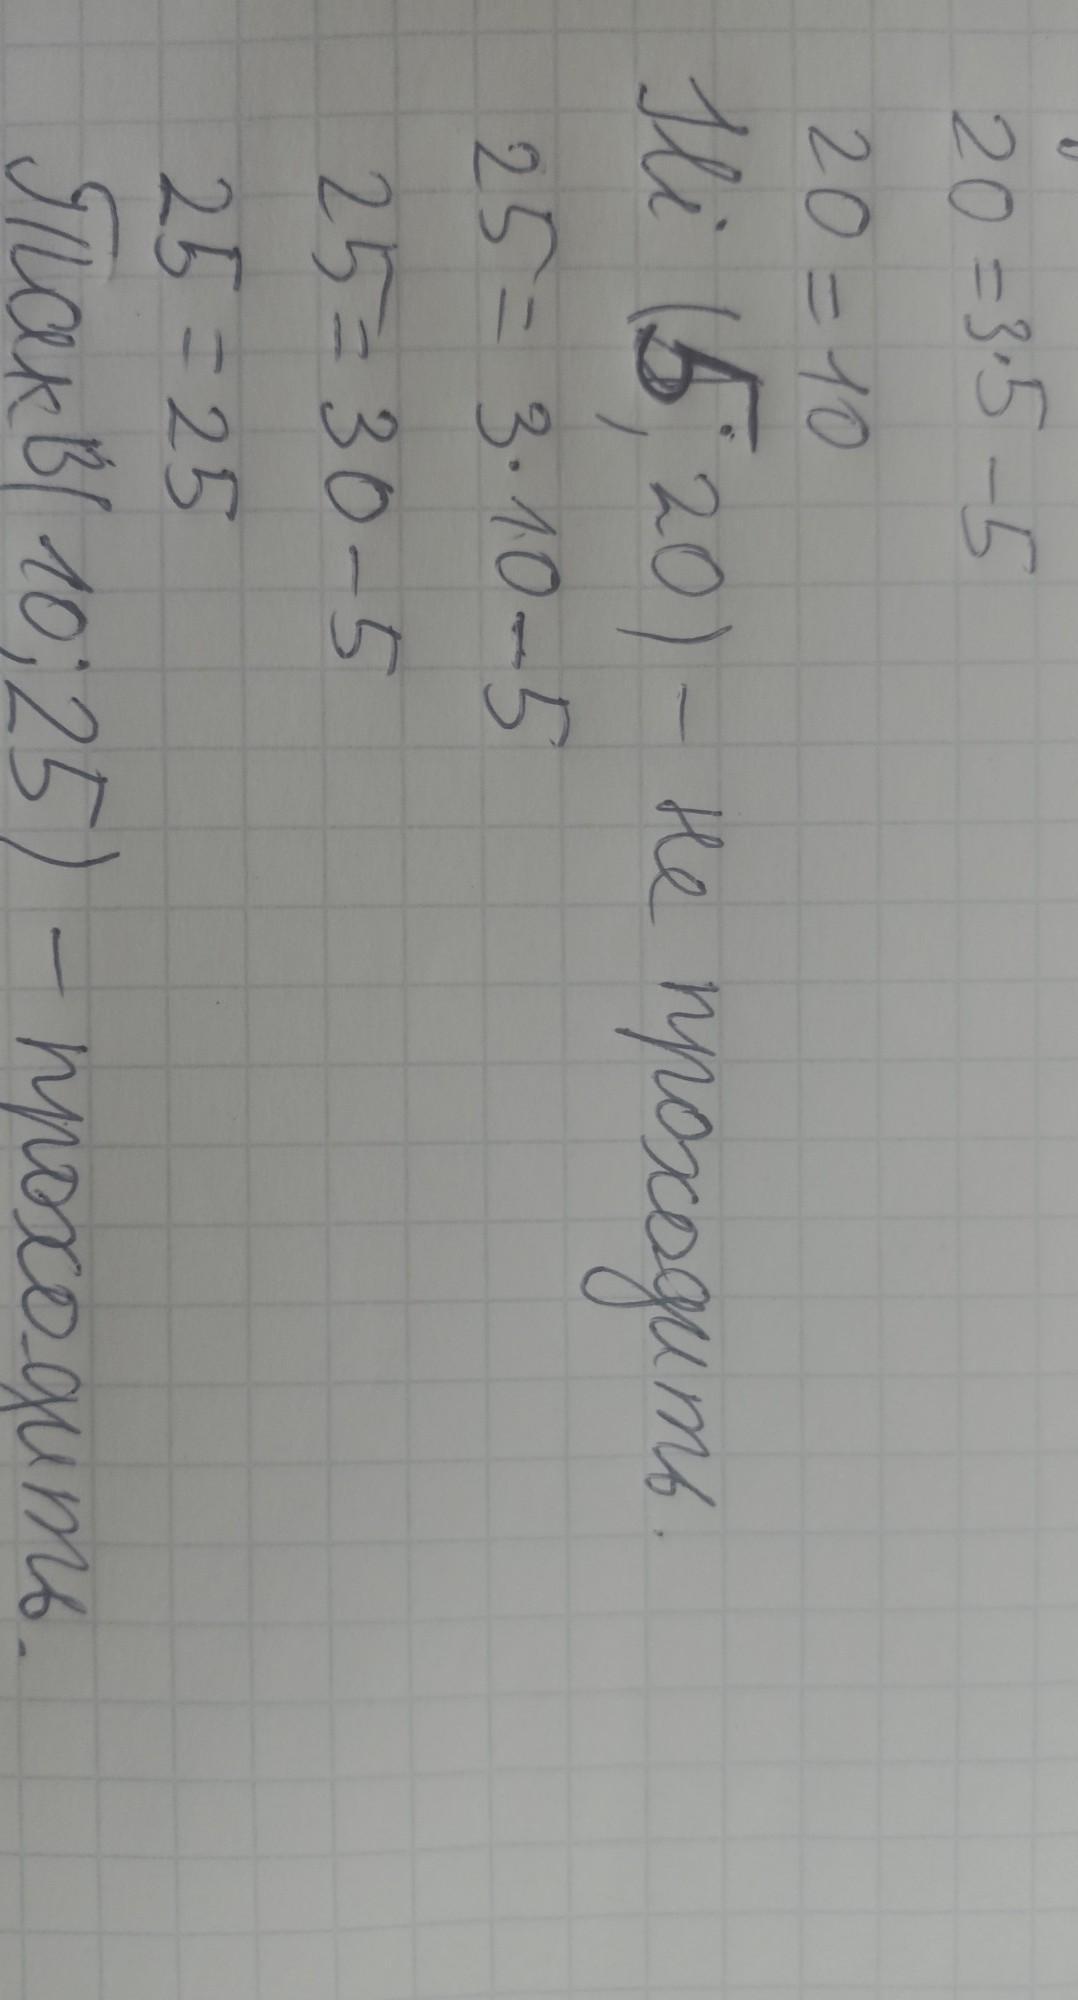 20 = 3·5 - 5
20 = 10
Ні (5; 20) - не проходить.
25 = 3·10 - 5
25 = 30 - 5
25 = 25
Так В(10; 25) - проходить.